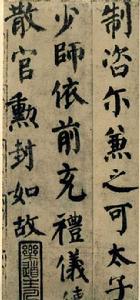 制咨尔兼之可太子
少師依前充禮儀
散官勳封如故